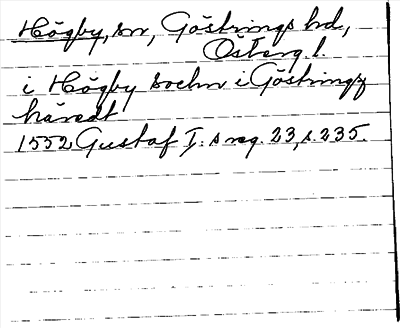 Högby, sn, Göstrings hd,
Österg. l.
i Högby sochn i Göstringz
häredt
1552 Gustaf I:s reg. 23, s. 235.